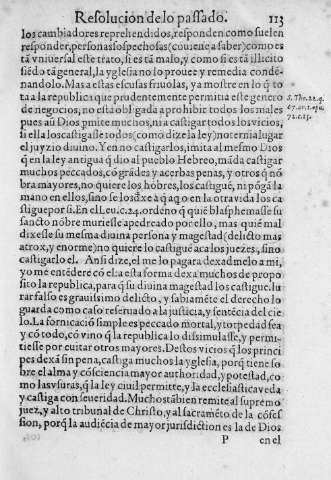 Resolucion de lo passado. 113
los cambiadores reprehendidos, responden como suelen
responder, personas sospechosas (cõuiene a saber) como es
tã vniuersal este trato, si es tã malo, y como si es tã illicito
siẽdo tã general, la yglesia no lo prouee y remedia conde-
nãdolo. Mas a estas escusas friuolas, ya mostre en lo q̃ to
ta a la republica que prudentemente permitia este genero
de negocios, no està obligada a prohibir todos los males
pues aũ Dios ꝑmite muchos, ni a castigar todos los vicios,
si ella los castigasse todos (como dize la ley) no ternia lugar
el juyzio diuino. Y en no castigarlos, imita al mesmo Dios
q̃ en la ley antigua q̃ dio al pueblo Hebreo, mãda castigar
muchos peccados, cõ grãdes y acerbas penas, y otros q̃ nõ
bra mayores, no quiere los hõbres, los castiguẽ, ni põgã la
mano en ellos, sino se los dxe a q̃ aq̃ o en la otra vida los ca
stigue por si. En el Leu. c. 24. ordeno q̃ quiẽ blasphemasse su
sancto nõbre muriesse apedreado por ello, mas quiẽ mal
dixesse la su mesma diuina persona y magestad (delicto mas
atrox, y enorme) no quiere lo castiguẽ aca los juezes, sino
castigarlo el. Ansi dize, el me lo pagara dexadmelo a mi,
yo me entẽdere cõ el: a esta forma dexa muchos de propo
sito la republica, para q̃ su diuina magestad los castigue. Iu
rar falso es grauissimo delicto, y sabiamẽte el derecho lo
guarda como caso reseruado a la justicia, y sentẽcia del cie
lo. La fornicaciõ simple es peccado mortal, y torpedad fea
y cõ todo, cõ vino q̃ la republica lo dissimulasse, y permi-
tiesse por euitar otros mayores. Destos vicios q̃ los princi
pes dexã sin pena, castiga muchos la yglesia, porq̃ tiene so
bre el alma y cõsciencia mayor authoridad, y potestad, co
mo las vsuras, q̃ la ley ciuil permitte, y la ecclesiastica veda
y castiga con seueridad. Muchos tãbien remite al supremo
juez, y alto tribunal de Christo, y al sacramẽto de la cõfes-
sion, porq̃ la audiẽcia de mayor jurisdiction es la de Dios
P en el
S. Tho. 22. q.